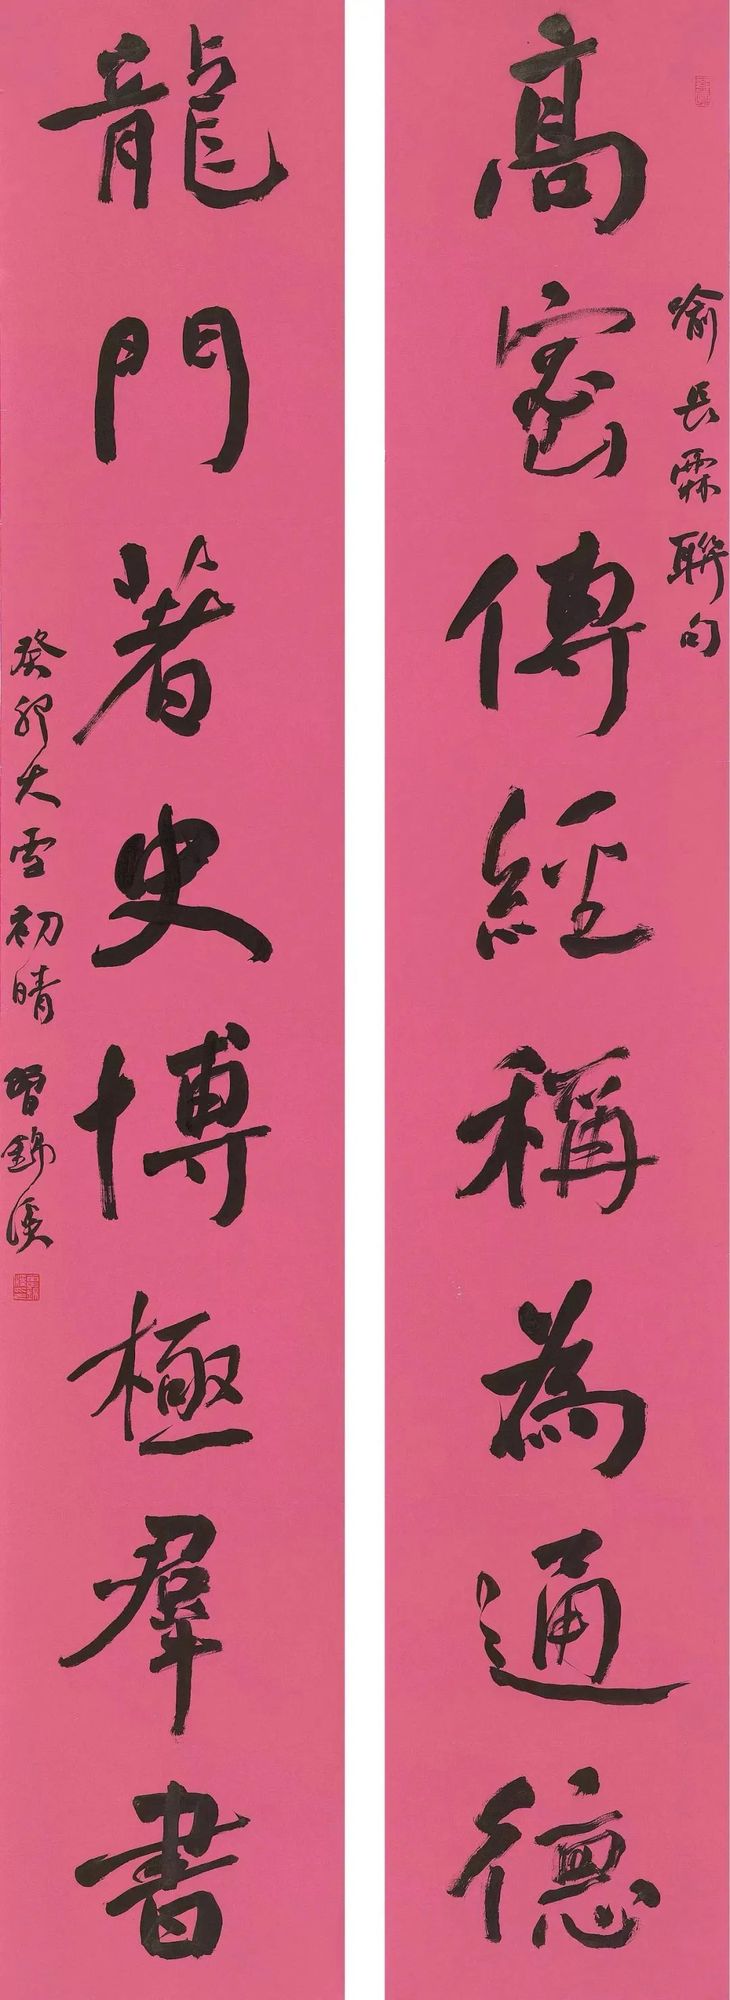 高密傳經稱為通德
喻長霖聯句
龍門著史博極羣書
癸卯大雪初晴 曾錦溪